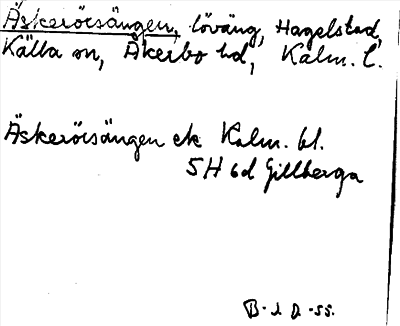 Äskerörsängen, löväng, Hagelstad,
Källa sn, Åkerbo hd, Kalm. l.
Äskerörsängen ek Kalm. bl.
5H 6d Gillberga
B-J D -55.